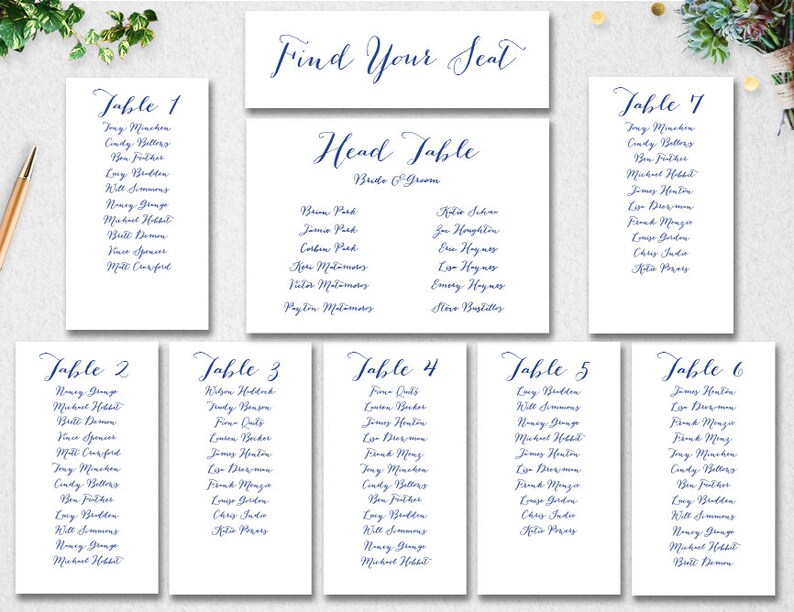 Find Your Seat
Table 1
Tony Minchen
Cindy Bellows
Ben Feather
Lucy Bradden
Will Simmons
Nancy Grange
Michael Hobbit
Brett Demon
Vince Spencer
Matt Crawford
Head Table
Bride & Groom
Brian Park
Jamie Park
Corbin Park
Keri Matamoros
Victor Matamoros
Payton Matamoros
Katie Schan
Zac Houghton
Eric Haynes
Lisa Haynes
Emery Haynes
Steve Bustillos
Table 7
Tony Minchen
Cindy Bellows
Ben Feather
Michael Hobbit
James Henton
Lisa Drewman
Frank Menzie
Louise Gordon
Chris Indie
Katie Powers
Table 2
Nancy Grange
Michael Hobbit
Brett Demon
Vince Spencer
Matt Crawford
Tony Minchen
Cindy Bellows
Ben Feather
Lucy Bradden
Will Simmons
Nancy Grange
Michael Hobbit
Table 3
Wilson Haddock
Trudy Benson
Fiona Quits
Lauren Becker
James Henton
Lisa Drewman
Frank Menzie
Louise Gordon
Chris Indie
Katie Powers
Table 4
Fiona Quits
Lauren Becker
James Henton
Lisa Drewman
Frank Menz
Tony Minchen
Cindy Bellows
Ben Feather
Lucy Bradden
Will Simmons
Nancy Grange
Michael Hobbit
Table 5
Lucy Bradden
Will Simmons
Nancy Grange
Michael Hobbit
James Henton
Lisa Drewman
Frank Menzie
Louise Gordon
Chris Indie
Katie Powers
Table 6
James Henton
Lisa Drewman
Frank Menz
Tony Minchen
Cindy Bellows
Ben Feather
Lucy Bradden
Will Simmons
Nancy Grange
Michael Hobbit
Brett Demon